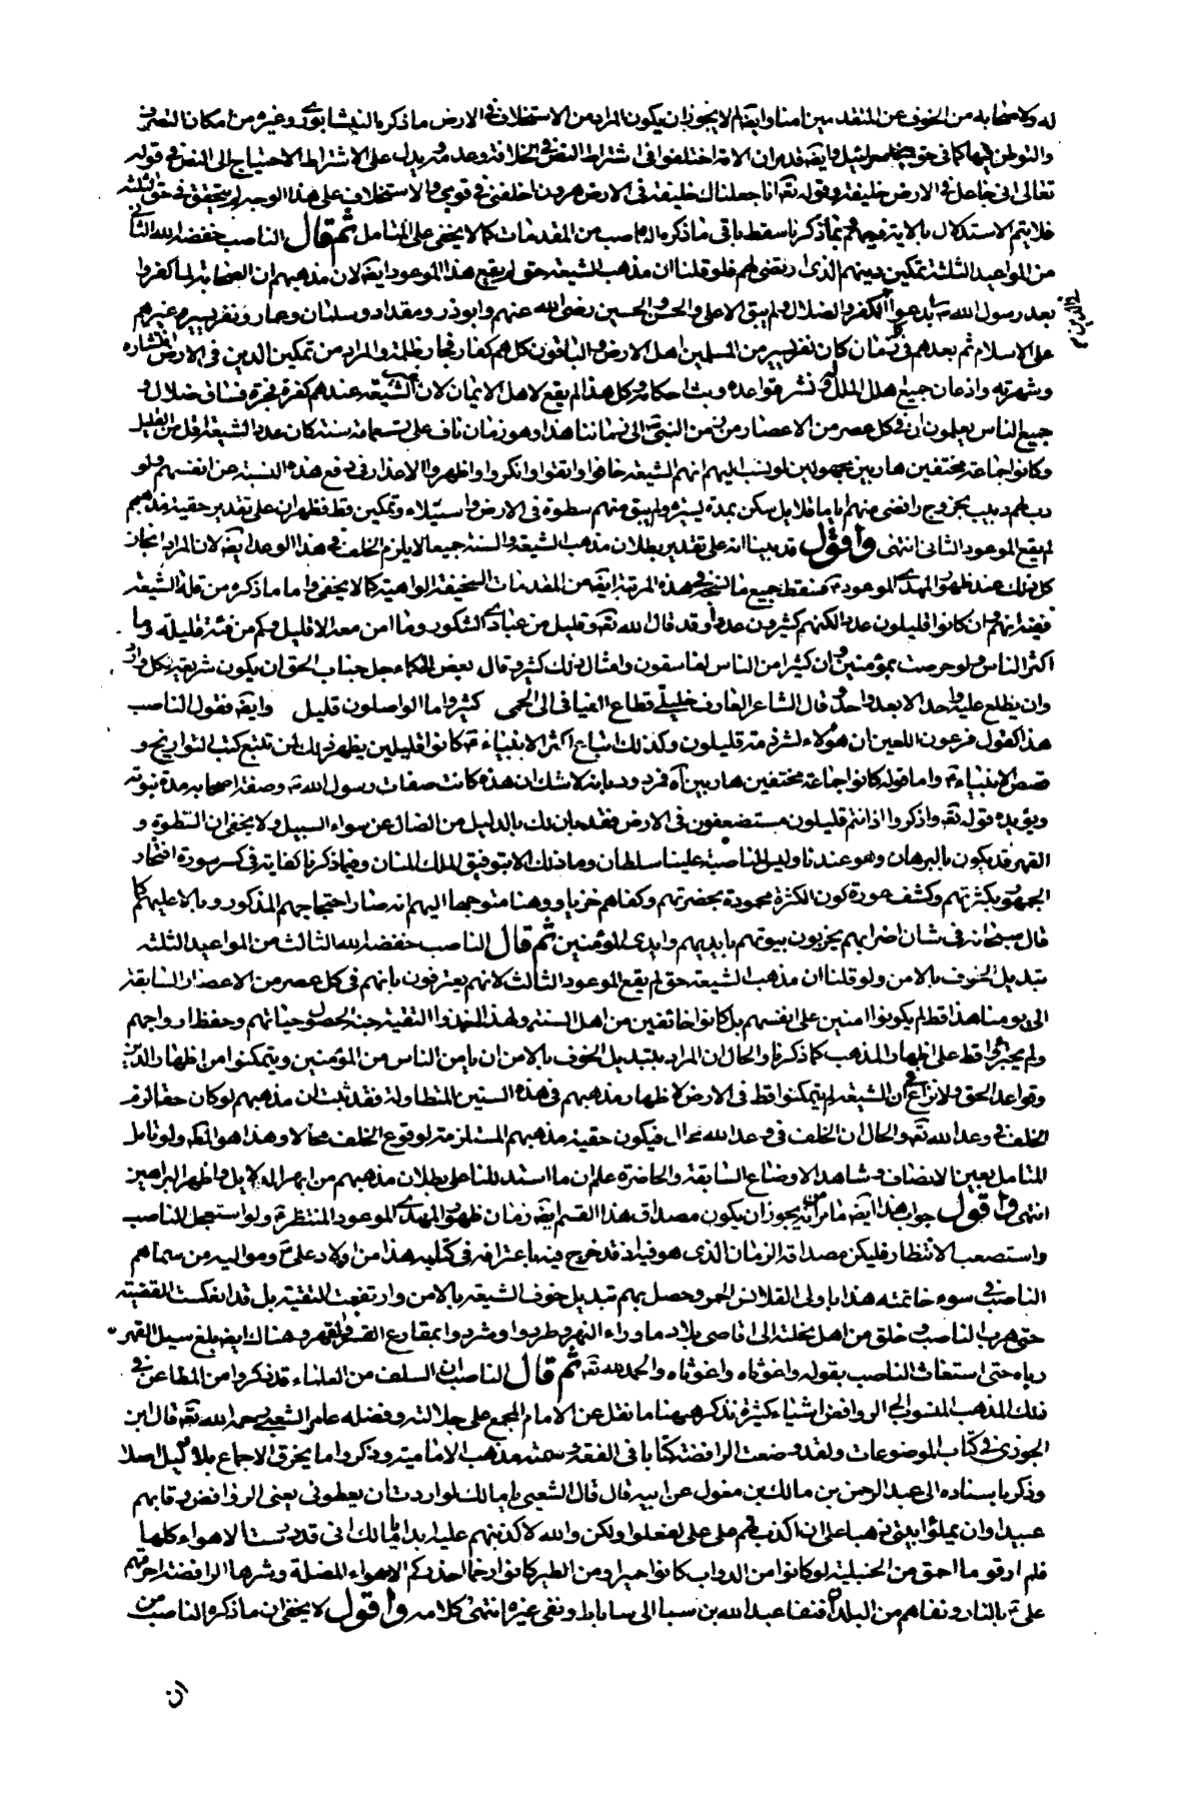 له ولاصحابه من الخوف عن المتقدمين امنا وايضا لم لا يجوز ان يكون المراد من الاستخلاف في الارض ما ذكره النيشابوري وغيره من امكان التصرف
والتوطن فيها كما في حق بني اسرائيل وايضا قد مر ان الامة اختلفوا في اشتراط النص في الخلافة وعدمه ويدل على الاشتراط الاحتياج الى النص في قوله
تعالى اني جاعل في الارض خليفة وقوله تعه انا جعلناك خليفة في الارض هرون اخلفني في قومي والاستخلاف على هذا الوجه لم يتحقق في حق الثلثة
فلا يتم الاستدلال بالاية فيهم وبما ذكرنا سقط باقي ما ذكره الناصب من المقدمات كما لا يخفى على المتامل ثم قال الناصب خفضه الله الثاني
من المواعيد الثلثة تمكين دينهم الذي ارتضى لهم فلو قلنا ان مذهب الشيعة حق لم يقع هذا الموعود ايضا لان مذهبهم ان الصحابة لما كفروا
بعد رسول الله ص بدعوا الكفر والضلال ولم يبق الا علي والحسن والحسين رضى الله عنهم وابو ذر ومقداد وسلمان وعمار ونفر يسير وغيرهم
على الاسلام ثم بعدهم في كل زمان كان نفر يسير من المسلمين اهل الارض والباقون كلهم كفار فجار ظلمة والمراد من تمكين الدين في الارض انتشاره
وشهرته واذعان جميع اهل الملل له ونشر قواعده وبث احكامه وكل هذا لم يقع لاهل الايمان لان الشيعة عندهم كفرة فجرة فساق ضلال و
جميع الناس يعلمون ان في كل عصر من الاعصار من زمن النبي ص الى زماننا هذا وهو زمان ناف على تسعمائة سنة كان عدد الشيعة اقل من القليل
وكانوا جماعة مختفين هاربين مجهولين لو نسب اليهم انهم الشيعة خافوا واتقوا وانكروا واظهروا الاعذار في دفع هذه النسبة عن انفسهم ولو
دب لهم دبيب بخروج رافضي منهم اياما قلايل سكن بمدة يسيرة ولم يبق منهم سطوة في الارض واستيلاء وتمكين قط فظهر ان على تقدير حقية مذهبهم
لم يقع الموعود الثاني انتهى واقول قد بينا انه على تقدير بطلان مذهب الشيعة والسنة جميعا لا يلزم الخلف في هذا الوعد ايضا لان المراد انجاز
كل ذلك عند ظهور المهدي الموعود ع فسقط جميع ما نسجه في هذه المرتبة ايضا من المقدمات السخيفة الواهية كما لا يخفى واما ما ذكره من قلة الشيعة
ففيه انهم وان كانوا قليلون عددا لكنهم كثيرون عددا وقد قال الله تعه وقليل من عبادي الشكور وما امن معه الا قليل وكم من فئة قليلة وما
اكثر الناس ولو حرصت بمؤمنين وان كثيرا من الناس لفاسقون وامثال ذلك كثير وقال بعض الحكماء جل جناب الحق ان يكون شريعة لكل وارد
وان يطلع عليه واحد الا بعد واحد وقال الشاعر العارف خليلي قطاع الفيافي الى الحمى كثير واما الواصلون قليل وايضا فقول الناصب
هذا كقول فرعون اللعين ان هؤلاء لشرذمة قليلون وكذلك اتباع اكثر الانبياء ع كانوا قليلين يظهر ذلك لمن تتبع كتب التواريخ و
قصص الانبياء ع واما قوله كانوا جماعة مختفين هاربين اه فمردود بانه لا شك ان هذه كانت صفات رسول الله ص وصفة اصحابه مدة نبوته
ويؤيده قوله تعه واذكروا اذ انتم قليلون مستضعفون في الارض فقد بان لك بالدليل من الضال عن سواء السبيل ولا يخفى ان السطوة و
القهر قد يكون بالبرهان وهو عندنا وليس للناصبة علينا سلطان وما ذلك الا بتوفيق الملك المنان وفيما ذكرنا كفاية في كسر سورة افتخار
الجمهور بكثرتهم وكشف عورة كون الكثرة محمودة بحضرتهم وكفاهم خزيا ووهنا متوجها اليهم انه صار احتجاجهم المذكور وبالا عليهم كما
قال سبحانه في شان اضرابهم يخربون بيوتهم بايديهم وايدي المؤمنين ثم قال الناصب خفضه الله الثالث من المواعيد الثلثة
تبديل الخوف بالامن ولو قلنا ان مذهب الشيعة حق لم يقع الموعود الثالث لانهم يعترفون بانهم في كل عصر من الاعصار السابقة
الى يومنا هذا قط لم يكونوا امنين على انفسهم بل كانوا خائفين من اهل السنة ولهذا اتخذوا التقية جنة لحصول حياتهم وحفظ ارواحهم
ولم يجترؤا قط على اظهار المذهب كما ذكرنا والحال ان المراد بتبديل الخوف بالامن ان يامن الناس من المؤمنين ويتمكنوا من اظهار الدين
وقواعد الحق ولا نزاع في ان الشيعة لم يتمكنوا قط في الارض لاظهار مذهبهم في هذه السنين المتطاولة فقد ثبت ان مذهبهم لو كان حقا لزم
الخلف في وعد الله تعه والحال ان الخلف في وعد الله محال فيكون حقية مذهبهم المستلزمة لوقوع الخلف محالا وهذا هو المطلوب ولو تامل
المتامل بعين الانصاف وشاهد الاوضاع السابقة والحاضرة علم ان ما استدللنا على بطلان مذهبهم من ابهر الدلايل واظهر البراهين
انتهى واقول جواب هذا ايضا ما مر من انه يجوز ان يكون مصداق هذا القسم ايضا زمان ظهور المهدي الموعود المنتظر ع ولو استعجل الناصب
واستصعب الانتظار فليكن مصداقه الزمان الذي هو فيه اذ قد خرج فيه باعترافه في كتابه هذا من اولاد علي ع ومواليه من سماهم
الناصب في سوء خاتمته هذا باولى القلانس الحمر وحصل بهم تبديل خوف الشيعة بالامن وارتفعت التقية بل قد انعكست القضية
حتى هرب الناصب وخلق من اهل نحلته الى اقاصي بلاد ما وراء النهر وطردوا وشردوا بمقارع القسر والقهر وهناك ايضا بلغ سيل القهر
رباه حتى استغاث الناصب بقوله واغوثاه واغوثاه والحمد لله تعه ثم قال الناصب ان السلف من العلماء قد ذكروا من المطاعن في
ذلك المذهب المنسوب الى الروافض اشياء كثيرة نذكر ههنا ما نقل عن الامام المجمع على جلالته وفضله عامر الشعبي رحمه الله تعه قال ابن
الجوزي في كتاب الموضوعات ولقد وضعت الرافضة كتابا في الفقه وسمته مذهب الامامية وذكروا ما يخرق الاجماع بلا دليل اصلا
وذكر باسناده الى عبد الرحمن بن مالك بن مغول عن ابيه قال قال الشعبي يا مالك لو اردت ان يعطوني يعني الروافض رقابهم
عبيدا وان يملؤا بيتي ذهبا على ان اكذب لهم على علي لفعلوا ولكن والله لا كذبتهم عليه ابدا يا مالك اني قد درست الاهواء كلها
فلم ار قوما احمق من الخشبية لو كانوا من الدواب كانوا حميرا ومن الطير كانوا رخما احذركم الاهواء المضلة وشرها الرافضة احرقهم
علي ع بالنار ونفاهم من البلد اه فنفا عبد الله بن سبا الى ساباط ونفى غيره انتهى كلامه واقول لا يخفى ان ما ذكره الناصب من
ان